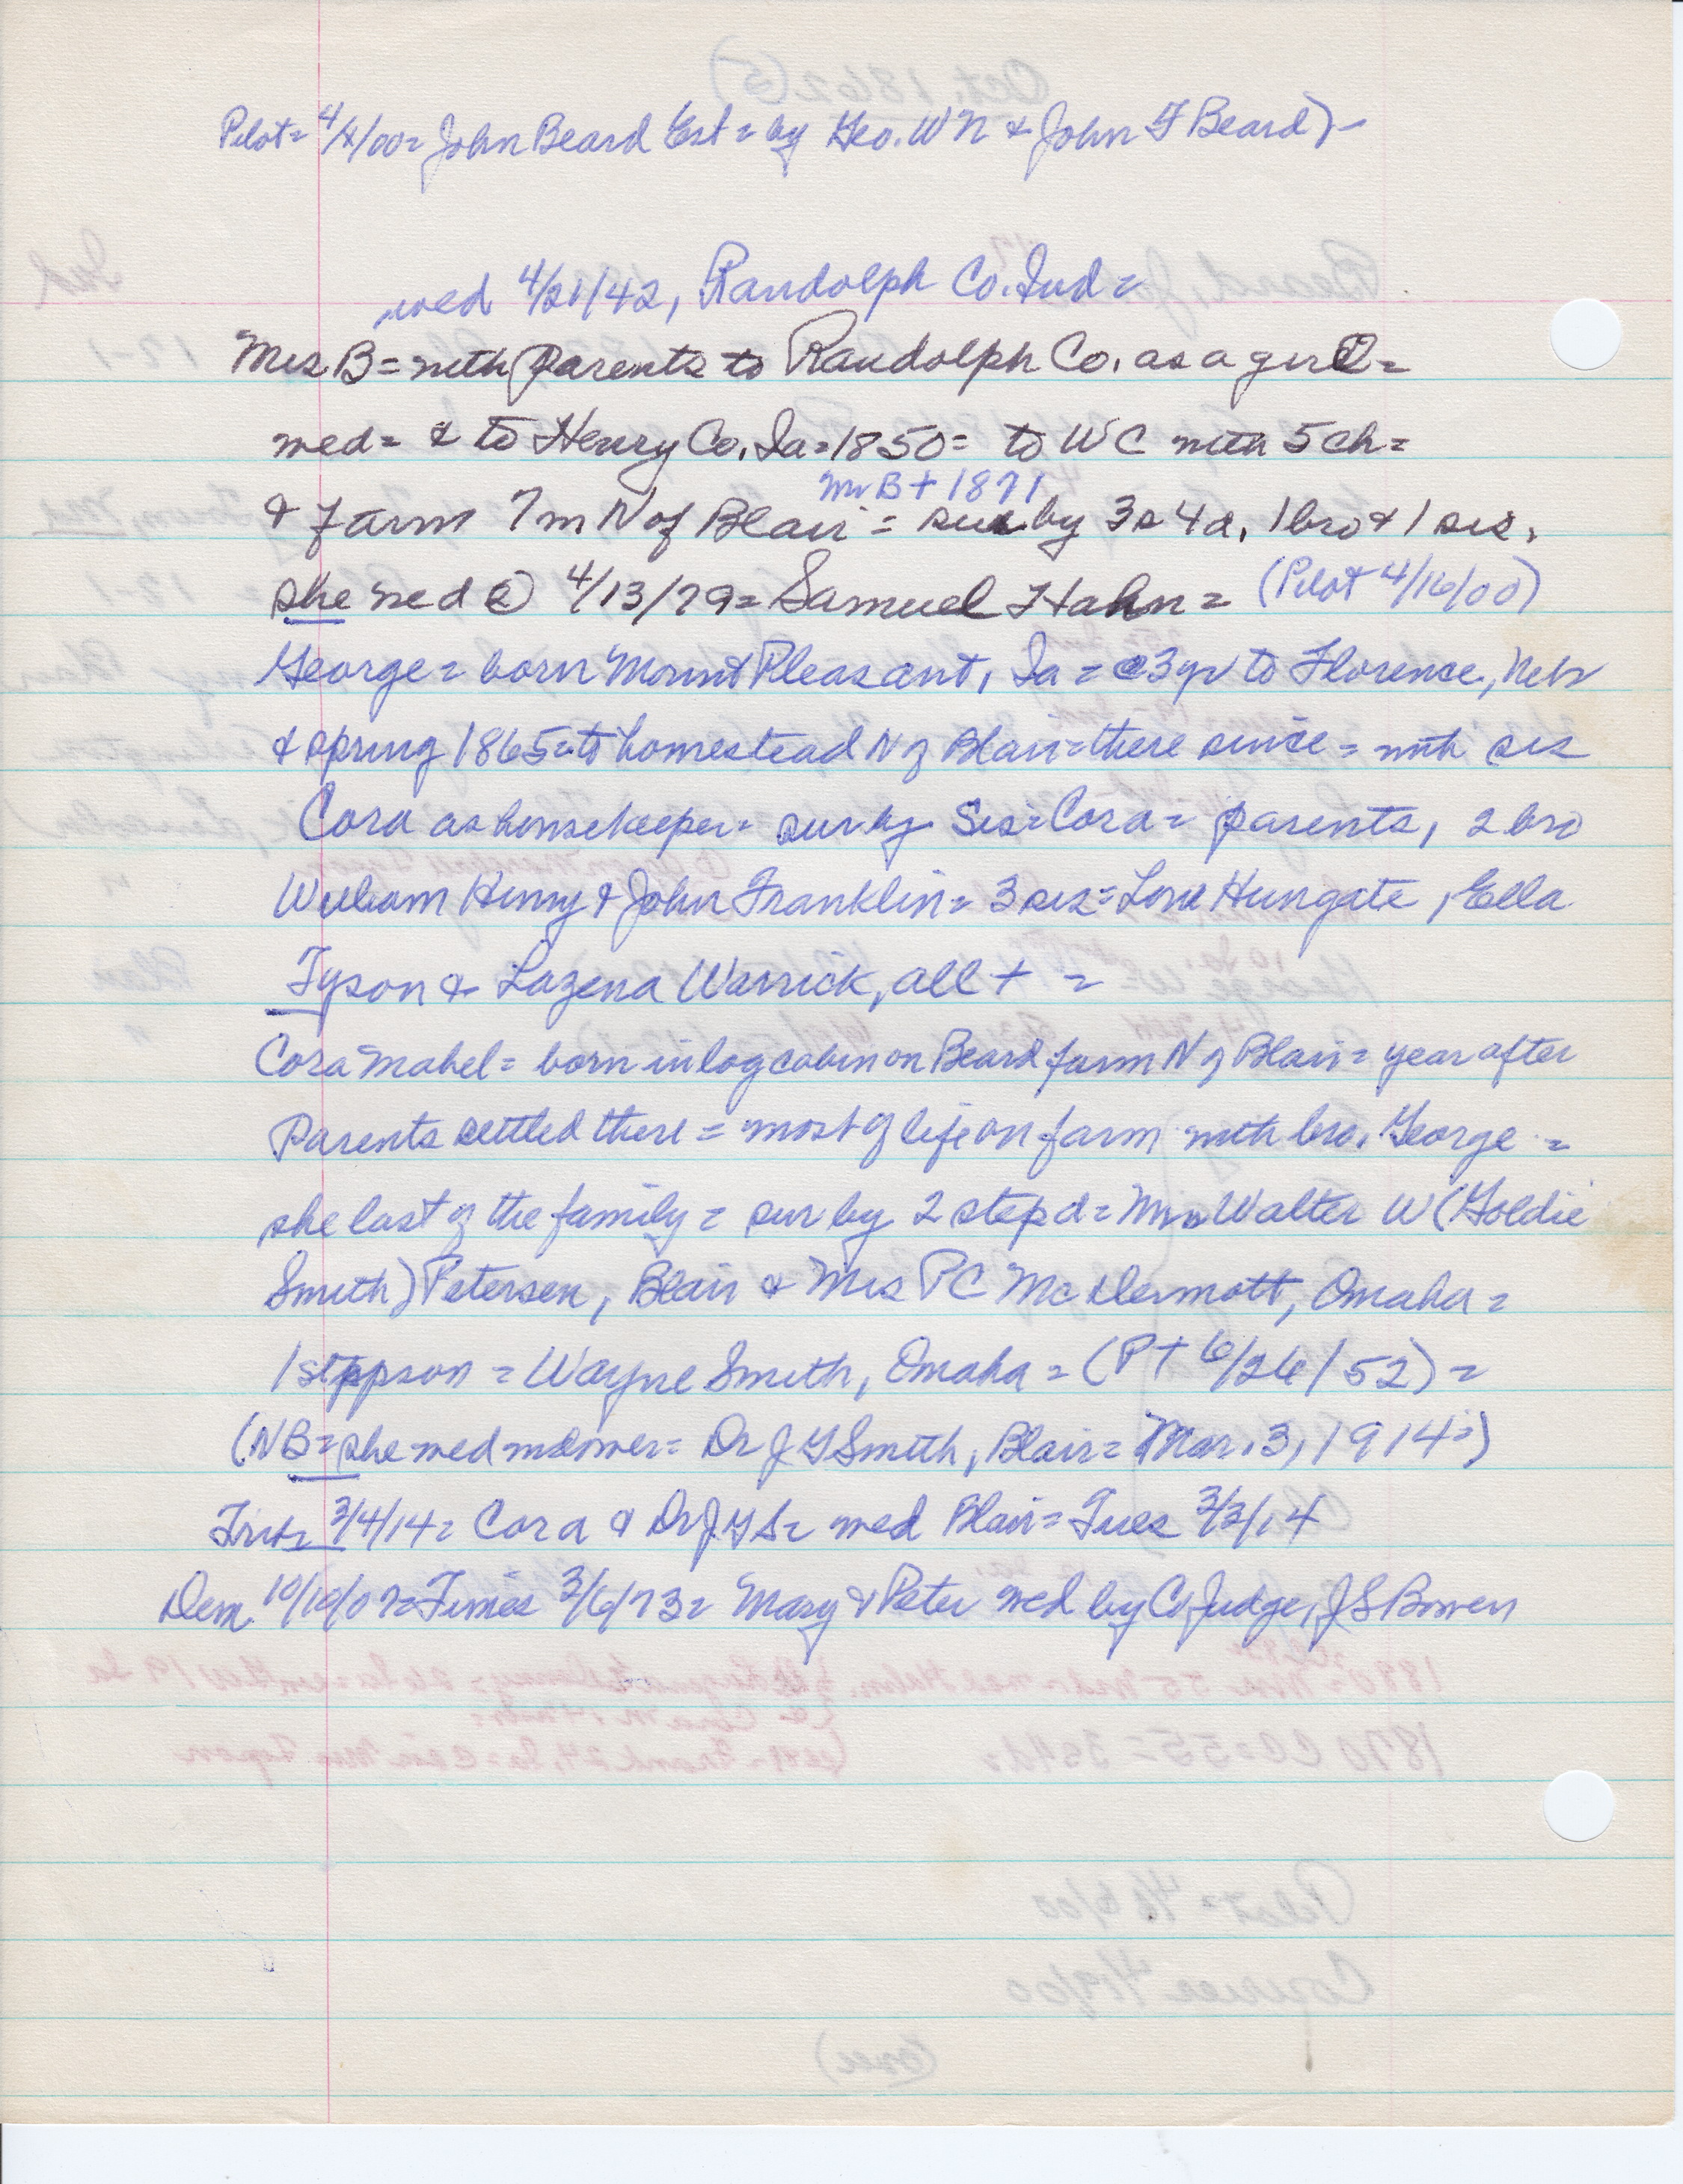 Pilot = 4/4/00 = John Beard Est = by Geo. W N & John F Beard) -
wed 4/21/42, Randolph Co. Ind =
Mrs. B = with Parents to Randolph Co. as a girl =
wed = & to Henry Co. Ia = 1850 = to WC with 5 ch =
Mr B + 1871
& farm 7 m N of Blair = sur by 3s 4d, 1 bro & 1 sis.
she wed ② 4/13/79 = Samuel Hahn = (Pilot 4/16/00)
George = born Mount Pleasant, Ia = @3yr to Florence, Nebr
& spring 1865 = to homestead N of Blair = there since = with sis
Cora as housekeeper = sur by Sis = Cora = parents, 2 bro
William Henry & John Franklin = 3 sis = Hungate, Ella
Tyson & Lazena Warrick, all + =
Cora Mabel = born in log cabin on Beard farm N of Blair = year after
Parents settled there = most of life on farm with bro. George =
she last of the family = sur by 2 step d = Mrs Walter W (Goldie
Smith) Petersen, Blair & Mrs PC McDermott, Omaha =
1 steppson = Wayne Smith, Omaha = (PT 6/26/52) =
(NB = she wed widower = Dr J G Smith, Blair = Mar. 3, 1914 =)
Trib 3/4/14 = Cora & Dr J G S = wed Blair = Tues 3/3/14
Dem. 10/10/07 = Times 3/6/73 = Mary & Peter wed by Co Judge, J S Bowen